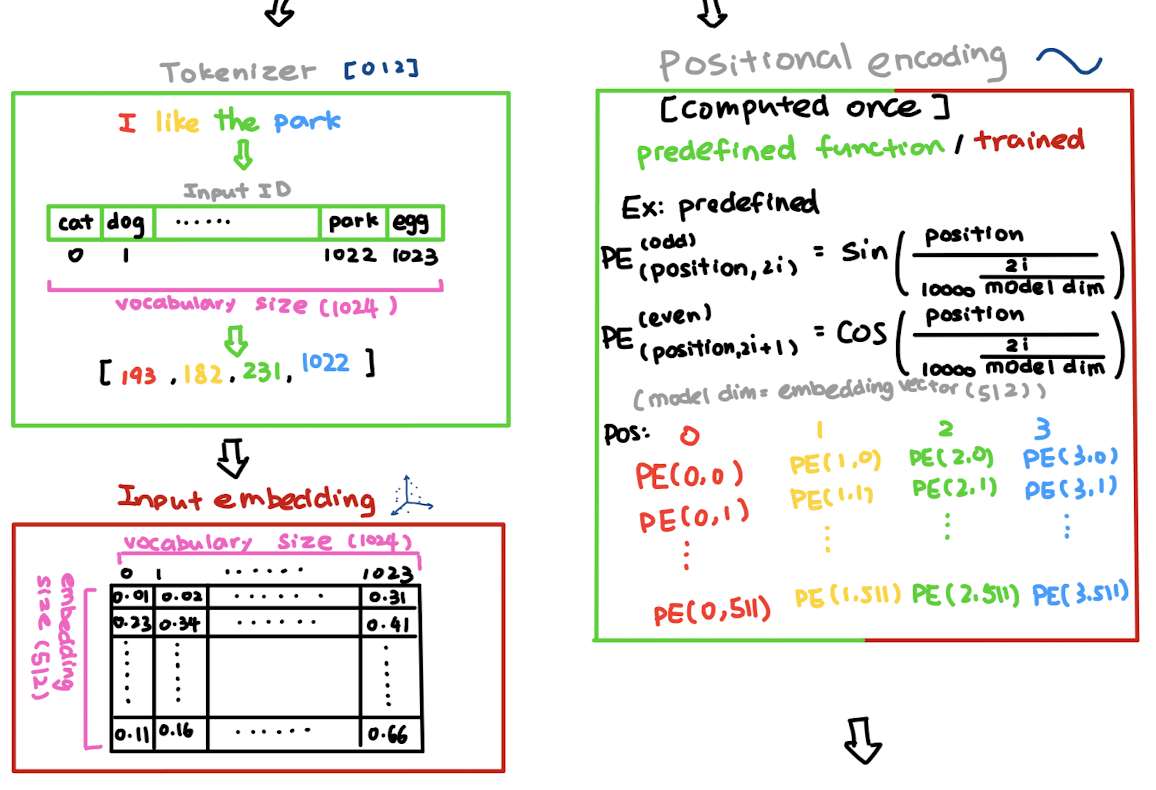 Tokenizer [012]
I like the park
Input ID
cat dog ...... park egg
0 1 1022 1023
vocabulary size (1024)
[193, 182, 231, 1022]
Input embedding
vocabulary size (1024)
0 1 ...... 1023
embedding
size (512)
0.01 0.02 ...... 0.31
0.23 0.34 ...... 0.41
0.11 0.16 ...... 0.66
Positional encoding
[computed once]
predefined function / trained
Ex: predefined
PE (odd) (position, 2i) = sin ( position / 10000 2i / model dim )
PE (even) (position, 2i+1) = cos ( position / 10000 2i / model dim )
(model dim = embedding vector (512))
Pos: 0 1 2 3
PE(0,0) PE(1,0) PE(2,0) PE(3,0)
PE(0,1) PE(1,1) PE(2,1) PE(3,1)
PE(0,511) PE(1,511) PE(2,511) PE(3,511)